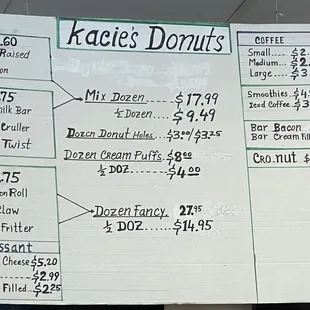 Kacie's Donuts
.60
Raised
on
.75
Milk Bar
Cruller
Twist
.75
on Roll
Claw
Fritter
ssant
Cheese $5.20
$2.99
Filled... $2.25
Mix Dozen $17.99
½ Dozen $9.49
Dozen Donut Holes $3.00/$3.25
Dozen Cream Puffs $8.00
½ DOZ $4.00
Dozen Fancy 27.95
½ DOZ $14.95
COFFEE
Small.... $2.
Medium... $2.
Large.... $3
Smoothies $4.
Iced Coffee $3
Bar Bacon
Bar Cream Fil
Cro.nut $